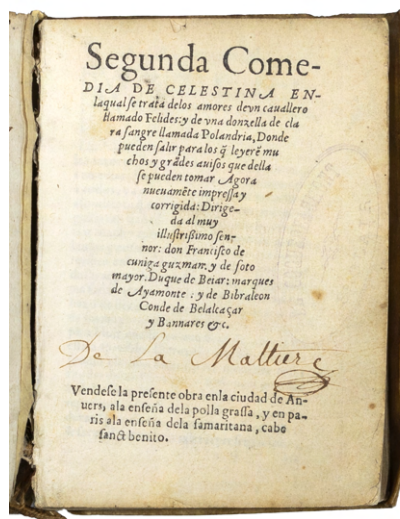 Segunda Come-
DIA DE CELESTINA EN-
laqual se trata delos amores deun cavallero
llamado Felides: y de vna donzella de cla
ra sangre llamada Polandria, Donde
pueden salir para los q̃ leyerẽ mu
chos y grãdes avisos que della
se pueden tomar Agora
nuevamẽte impressa y
corrigida: Dirige-
da al muy
illustrißimo sen-
nor: don Francisco de
cuniga guzman: y de soto
mayor. Duque de Beiar: marques
de Ayamonte: y de Bibraleon
Conde de Belalcaçar
y Bannares &c.
De La Mattiere
Vendese la presente obra enla ciudad de An-
uers, ala enseña dela polla grassa, y en pa-
ris ala enseña dela samaritana, cabe
sanct benito.